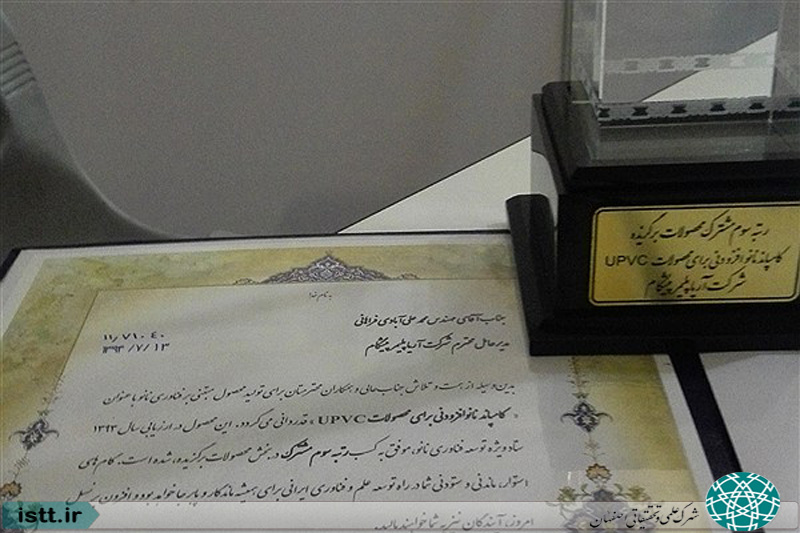 به نام خدا
۱۱/۷۱۰۴۰
۱۳۹۳/۷/۱۳
جناب آقای مهندس محمد علی آبادی فراهانی
مدیرعامل محترم شرکت آریا پلیمر پیشگام
بدین وسیله از همت و تلاش جنابعالی و همکاران محترمتان برای تولید محصول مبتنی بر فناوری نانو با عنوان
« کامپاند نانو افزودنی برای محصولات UPVC » قدردانی می گردد . این محصول در ارزیابی سال ۱۳۹۳
ستاد ویژه توسعه فناوری نانو، موفق به کسب رتبه سوم مشترک در بخش محصولات برگزیده، شده است. گام های
استوار، ماندنی و ستودنی شما در راه توسعه علم و فناوری ایرانی برای همیشه ماندگار و پابرجا خواهد بود و افزون بر نسل
امروز، آیندگان نیز به شما خواهند بالید.
رتبه سوم مشترک محصولات برگزیده
کامپاند نانو افزودنی برای محصولات UPVC
شرکت آریا پلیمر پیشگام
istt.ir
شرکت علمی و تحقیقاتی اصفهان